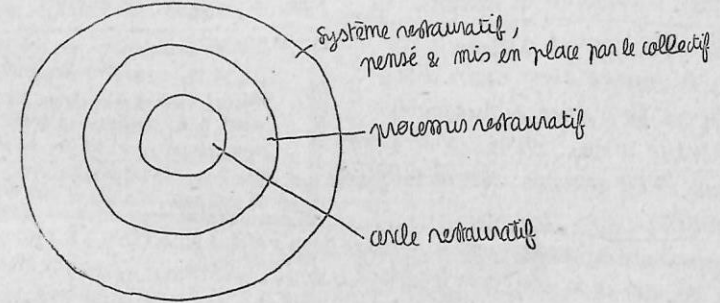 système restauratif,
pensé & mis en place par le collectif
processus restauratif
cercle restauratif